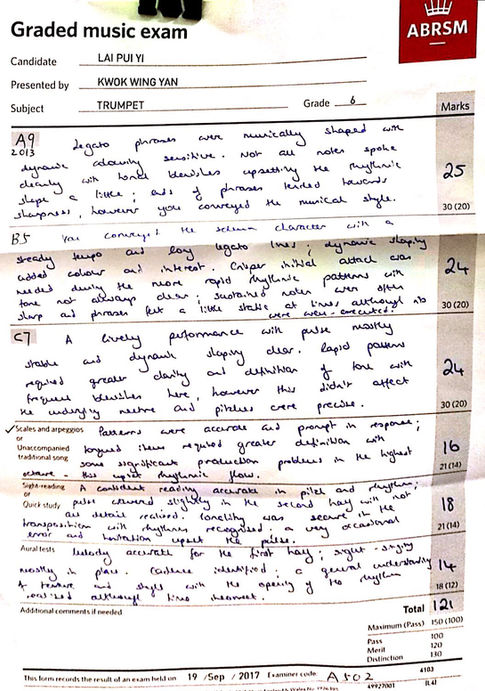 Graded music exam
ABRSM
Candidate LAI PUI YI
Presented by KWOK WING YAN
Subject TRUMPET Grade 6
Marks
A9 Legato phrases were musically shaped with
2013 dynamic colouring sensitive. Not all notes spoke
cleanly with tonal blemishes upsetting the rhythmic
shape a little; ends of phrases tended towards
sharpness, however you conveyed the musical style.
25
30 (20)
B5 You conveyed the character with a
steady tempo and long legato lines; dynamic shaping
added colour and interest. Crisper initial attack was
needed during the more rapid rhythmic patterns with
tone not always clear; sustained notes were often
sharp and phrases felt a little static at times although
were well-executed.
24
30 (20)
C7 A lively performance with pulse mostly
stable and dynamic shaping clear. Rapid patterns
required greater clarity and definition of tone with
frequent blemishes here, however this didn't affect
the underlying metre and pitches were precise.
24
30 (20)
Scales and arpeggios Patterns were accurate and prompt in response;
or
Unaccompanied tongued items required greater definition with
traditional song some significant production problems in the highest
octave this upset rhythmic flow.
16
21 (14)
Sight-reading A confident reading accurate in pitch and rhythm;
or
Quick study pulse wavered slightly in the second half with not
all detail realised. Tonality was secure in the
transposition with rhythms recognised. a very occasional
error and hesitation upset the pulse.
18
21 (14)
Aural tests Melody accurate for the first half; sight-singing
mostly in place. Cadence identified; a general understanding
of texture and style with the opening of the rhythm
realised although time incorrect.
14
18 (12)
Additional comments if needed
Total 121
Maximum (Pass) 150 (100)
Pass 100
Merit 120
Distinction 130
This form records the result of an exam held on 19 / Sep / 2017 Examiner code: A502
4103